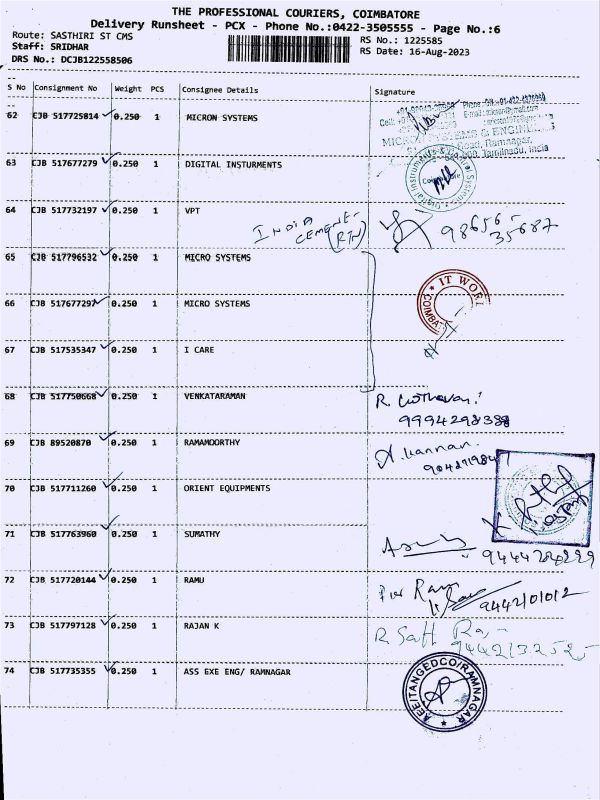 THE PROFESSIONAL COURIERS, COIMBATORE
Delivery Runsheet - PCX - Phone No.:0422-3505555 - Page No.:6
Route: SASTHIRI ST CMS
RS No.: 1225585
Staff: SRIDHAR
RS Date: 16-Aug-2023
DRS No.: DCJB122558506
S No Consignment No Weight PCS Consignee Details Signature
62 CJB 517725814 0.250 1 MICRON SYSTEMS
63 CJB 517677279 0.250 1 DIGITAL INSTURMENTS
64 CJB 517732197 0.250 1 VPT
INDIA
CEMENT-
(RTN)
98656-
35687
65 CJB 517796532 0.250 1 MICRO SYSTEMS
66 CJB 517677297 0.250 1 MICRO SYSTEMS
IT WORL
COIMBAT
67 CJB 517535347 0.250 1 I CARE
68 CJB 517750668 0.250 1 VENKATARAMAN
9994298388
69 CJB 89520870 0.250 1 RAMAMOORTHY
Kannan
70 CJB 517711260 0.250 1 ORIENT EQUIPMENTS
71 CJB 517763960 0.250 1 SUMATHY
72 CJB 517720144 0.250 1 RAMU
9442101012
73 CJB 517797128 0.250 1 RAJAN K
74 CJB 517735355 0.250 1 ASS EXE ENG/ RAMNAGAR
AEE/TANGEDCO/RAMNAGAR